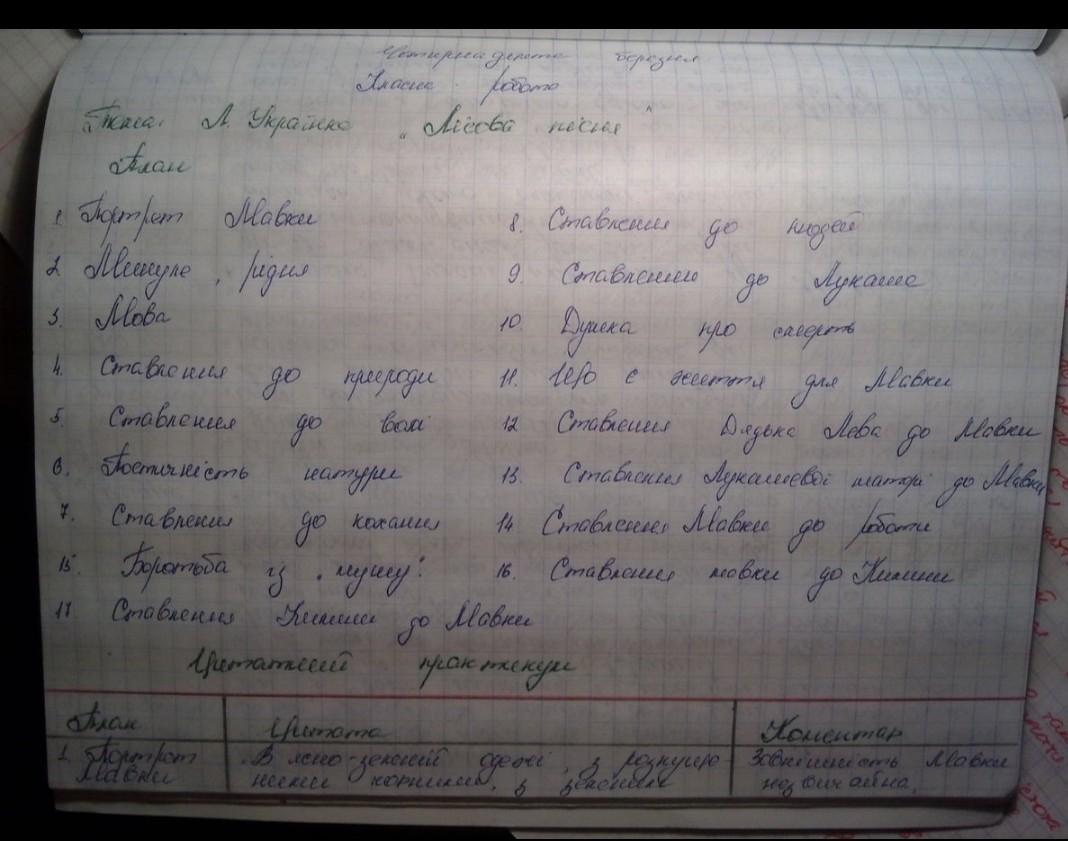 Чотирнадцяте березня
Класна робота
Тема: Л. Українка „Лісова пісня"
План
1. Портрет Мавки
2. Минуле, рідня
3. Мова
4. Ставлення до природи
5. Ставлення до волі
6. Поетичність натури
7. Ставлення до кохання
8. Ставлення до людей
9. Ставлення до Лукаша
10. Думка про смерть
11. Що є життя для Мавки
12. Ставлення Дядька Лева до Мавки
13. Ставлення Лукашевої матері до Мавки
14. Ставлення Мавки до роботи
15. Боротьба із „мушу".
16. Ставлення мавки до Килини
17. Ставлення Килини до Мавки
Цитатний практикум
План Цитата Коментар
1. Портрет Мавки
„В ясно-зеленій одежі, з розпуще-
ними косами, з зеленим
Зовнішність Мавки
незвичайна,